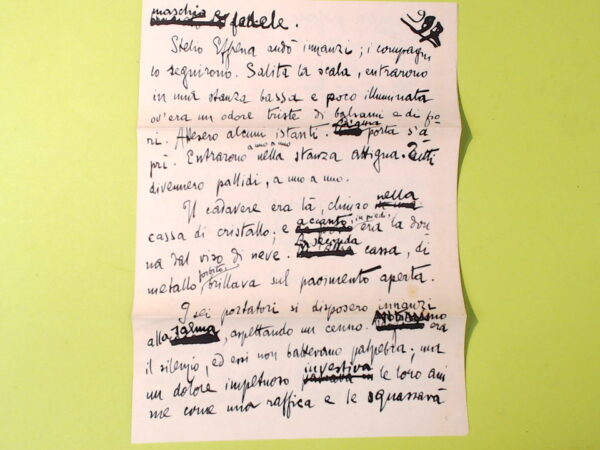 maschia e fedele.
Stelio Effrena andò innanzi; i compagni
lo seguirono. Salita la scala, entrarono
in una stanza bassa e poco illuminata
ov'era un odore triste di balsami e di fio-
ri. Attesero alcuni istanti. porta s'a-
prì. Entrarono a uno a uno nella stanza attigua. Tutti
divennero pallidi, a uno a uno.
Il cadavere era là, chiuso nella
cassa di cristallo; e accanto, in piedi, era la don-
na dal viso di neve. La seconda cassa, di
metallo forbito, brillava sul pavimento aperta.
I sei portatori si disposero innanzi
alla salma, aspettando un cenno. era
il silenzio, ed essi non battevano palpebra; ma
un dolore impetuoso investiva le loro ani-
me come una raffica e le squassava